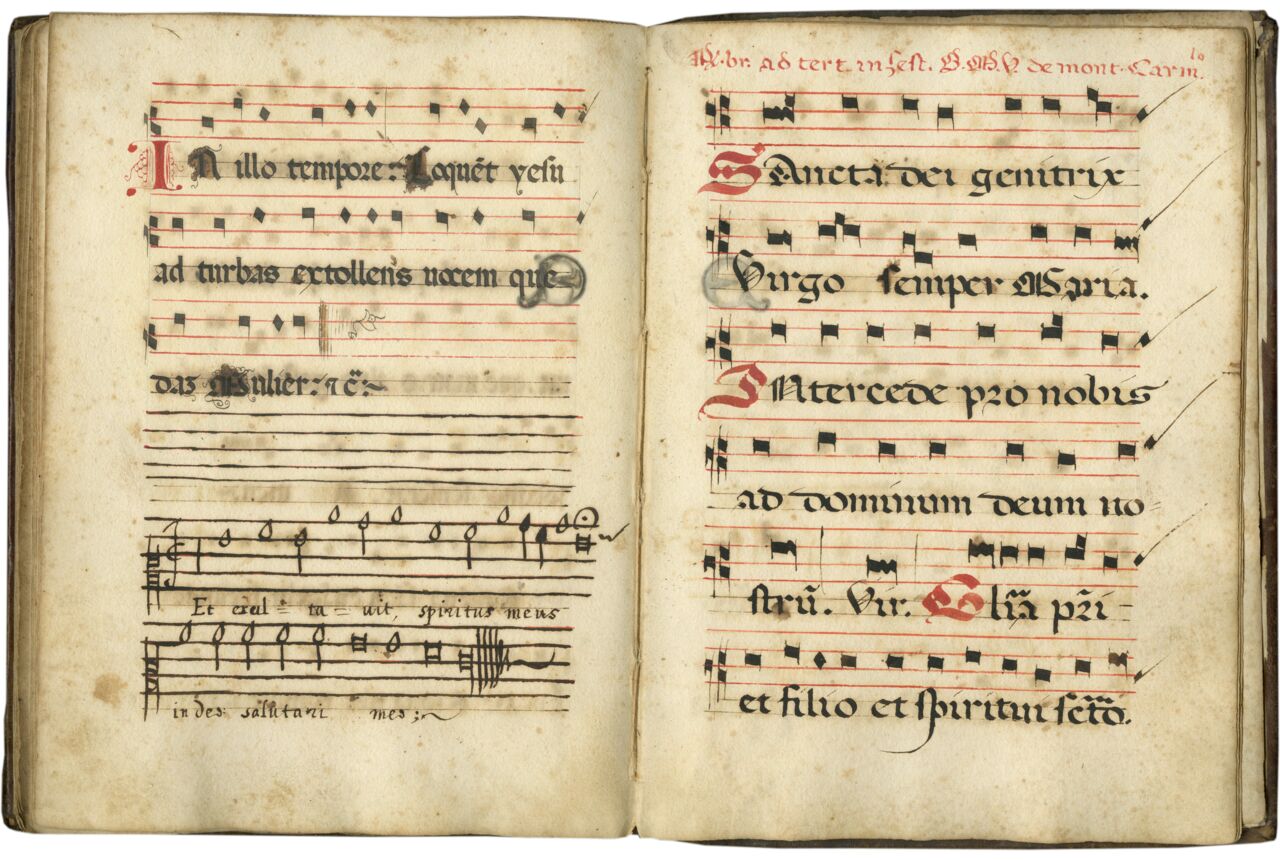 IN illo tempore: Loquēt yesu
ad turbas extollens uocem que-
daz Mulier: ⁊ c̄:~
Et exal = ta = uit, spiritus meus
in deo salutari meo;~
℟. br. ad tert. in fest. B. M. V. de mont. Carm.
10
SAncta dei genitrix
Virgo semper Maria.
INtercede pro nobis
ad dominum deum no-
strū. Vir. Glīa p̄ri-
et filio et spiritui sctō.